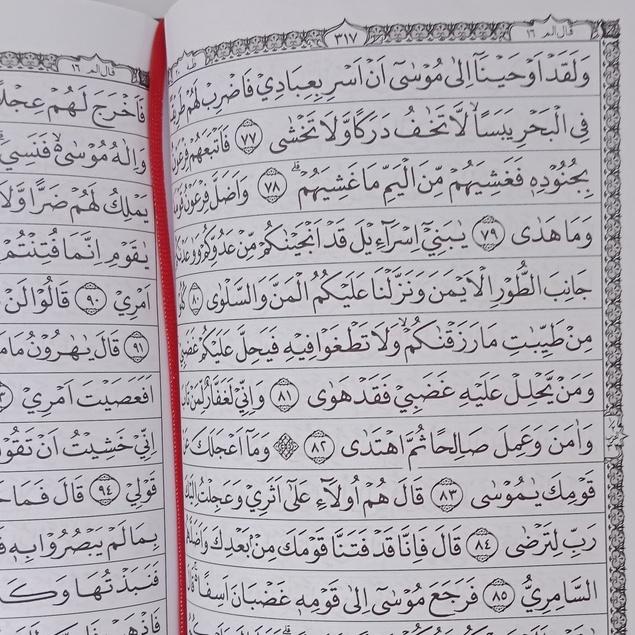 قال الم ١٦
٣١٧
طه
وَلَقَدْ اَوْحَيْنَآ اِلٰى مُوْسٰٓى اَنْ اَسْرِ بِعِبَادِيْ فَاضْرِبْ لَهُمْ
فِى الْبَحْرِ يَبَسًاۙ لَّا تَخٰفُ دَرَكًا وَّلَا تَخْشٰى ٧٧ فَاَتْبَعَهُمْ
بِجُنُوْدِهٖ فَغَشِيَهُمْ مِّنَ الْيَمِّ مَا غَشِيَهُمْۗ ٧٨ وَاَضَلَّ فِرْعَوْنُ
وَمَا هَدٰى ٧٩ يٰبَنِيْٓ اِسْرَاۤءِيْلَ قَدْ اَنْجَيْنٰكُمْ مِّنْ عَدُوِّكُمْ
جَانِبَ الطُّوْرِ الْاَيْمَنَ وَنَزَّلْنَا عَلَيْكُمُ الْمَنَّ وَالسَّلْوٰى ٨٠
مِنْ طَيِّبٰتِ مَا رَزَقْنٰكُمْۙ وَلَا تَطْغَوْا فِيْهِ فَيَحِلَّ عَلَيْكُمْ
وَمَنْ يَّحْلِلْ عَلَيْهِ غَضَبِيْ فَقَدْ هَوٰى ٨١ وَاِنِّيْ لَغَفَّارٌ لِّمَنْ
وَاٰمَنَ وَعَمِلَ صَالِحًا ثُمَّ اهْتَدٰى ٨٢ وَمَآ اَعْجَلَكَ
قَوْمِكَ يٰمُوْسٰى ٨٣ قَالَ هُمْ اُولَاۤءِ عَلٰٓى اَثَرِيْ وَعَجِلْتُ
رَبِّ لِتَرْضٰى ٨٤ قَالَ فَاِنَّا قَدْ فَتَنَّا قَوْمَكَ مِنْۢ بَعْدِكَ
السَّامِرِيُّ ٨٥ فَرَجَعَ مُوْسٰٓى اِلٰى قَوْمِهٖ غَضْبَانَ اَسِفًا
قال الم ١٦
فَاَخْرَجَ لَهُمْ عِجْلًا
وَاِلٰهُ مُوْسٰى فَنَسِيَ
يَمْلِكُ لَهُمْ ضَرًّا
يٰقَوْمِ اِنَّمَا فُتِنْتُمْ
اَمْرِيْ ٩٠ قَالُوْا لَنْ
٩١ قَالَ يٰهٰرُوْنُ
اَفَعَصَيْتَ اَمْرِيْ
اِنِّيْ خَشِيْتُ اَنْ
قَوْلِيْ ٩٤ قَالَ فَمَا
بِمَا لَمْ يَبْصُرُوْا بِهٖ
فَنَبَذْتُهَا